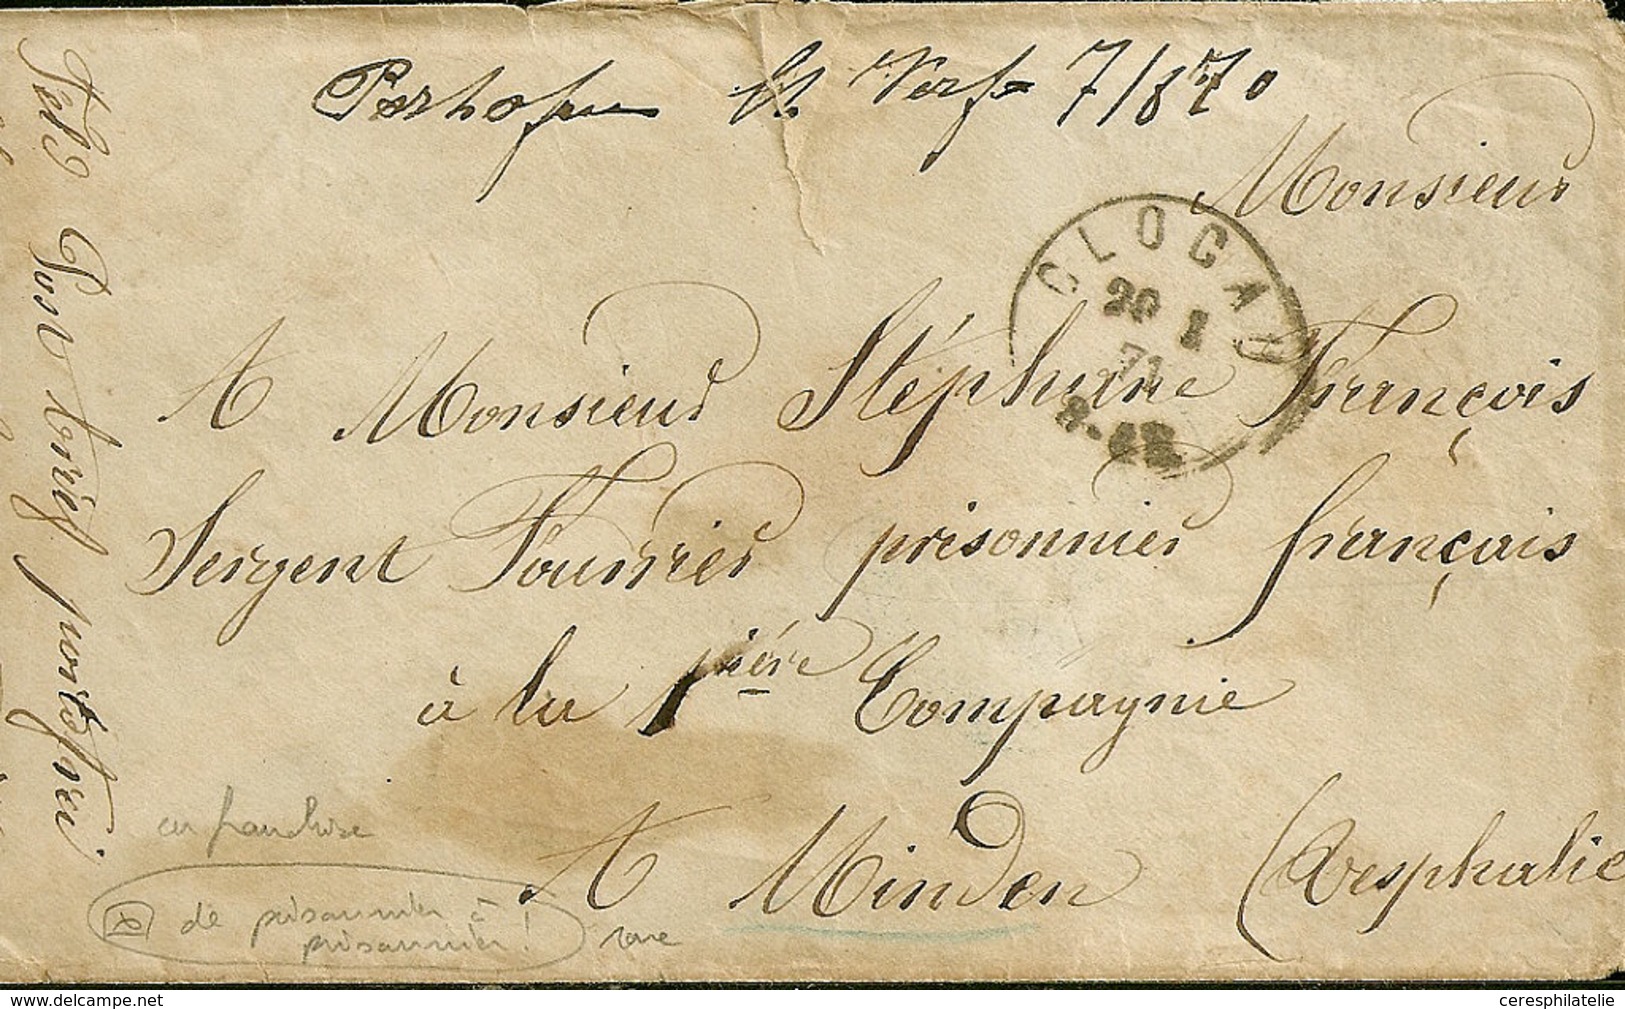 Portofrei lt Verf 7/8 70
Monsieur
GLOGAU
20 1
71
8-12
A Monsieur Stéphane François
Sergent Fourrier prisonnier français
à la 1ière Compagnie
A Minden (Vesphalie
Feld Post brief portofrei.
en franchise
de prisonnier à
prisonnier! rare
www.delcampe.net
ceresphilatelie